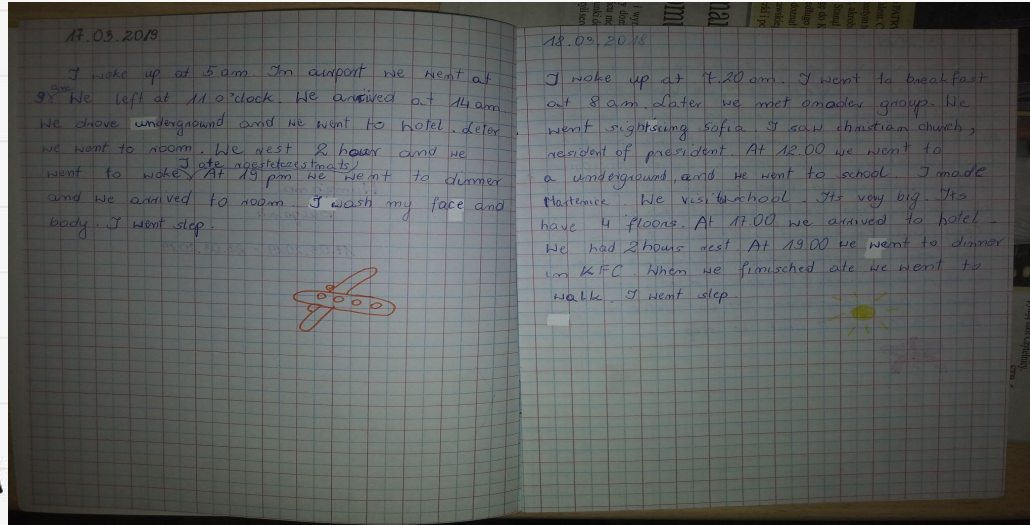 17.03.2018
I woke up at 5 am. In airport we went at
9 am We left at 11 o'clock. We arrived at 14 am
We drove underground and we went to hotel. Leter
we want to room. We rest 2 hour and we
I ate
went to woke. At 19 pm we went to dinner
and we arrived to room. I wash my face and
body. I went slep.
18.03.2018
I woke up at 7.20 am. I went to breakfast
at 8 am. Later we met omader group. We
went sightseing sofia I saw christian church,
resident of president. At 12.00 we went to
a underground, and we went to school. I made
Martenice. We visit school. Its very big. Its
have 4 floors. At 17.00 we arrived to hotel.
We had 2 hours rest At 19.00 we went to dinner
in KFC. When we finisched ate we went to
walk. I went slep